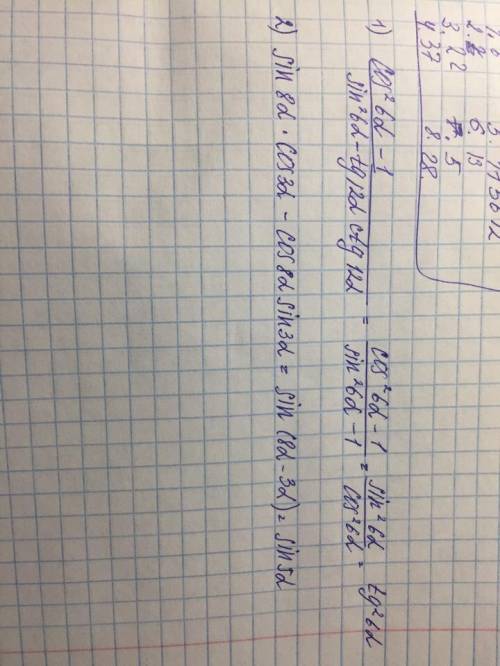 3. 22 7. 5
4 37 8. 28
1) cos²6α - 1 / sin²6α - tg12α ctg12α = cos²6α - 1 / sin²6α - 1 = sin²6α / cos²6α = tg²6α
2) sin 8α · cos3α - cos 8α sin3α = sin (8α - 3α) = sin5α